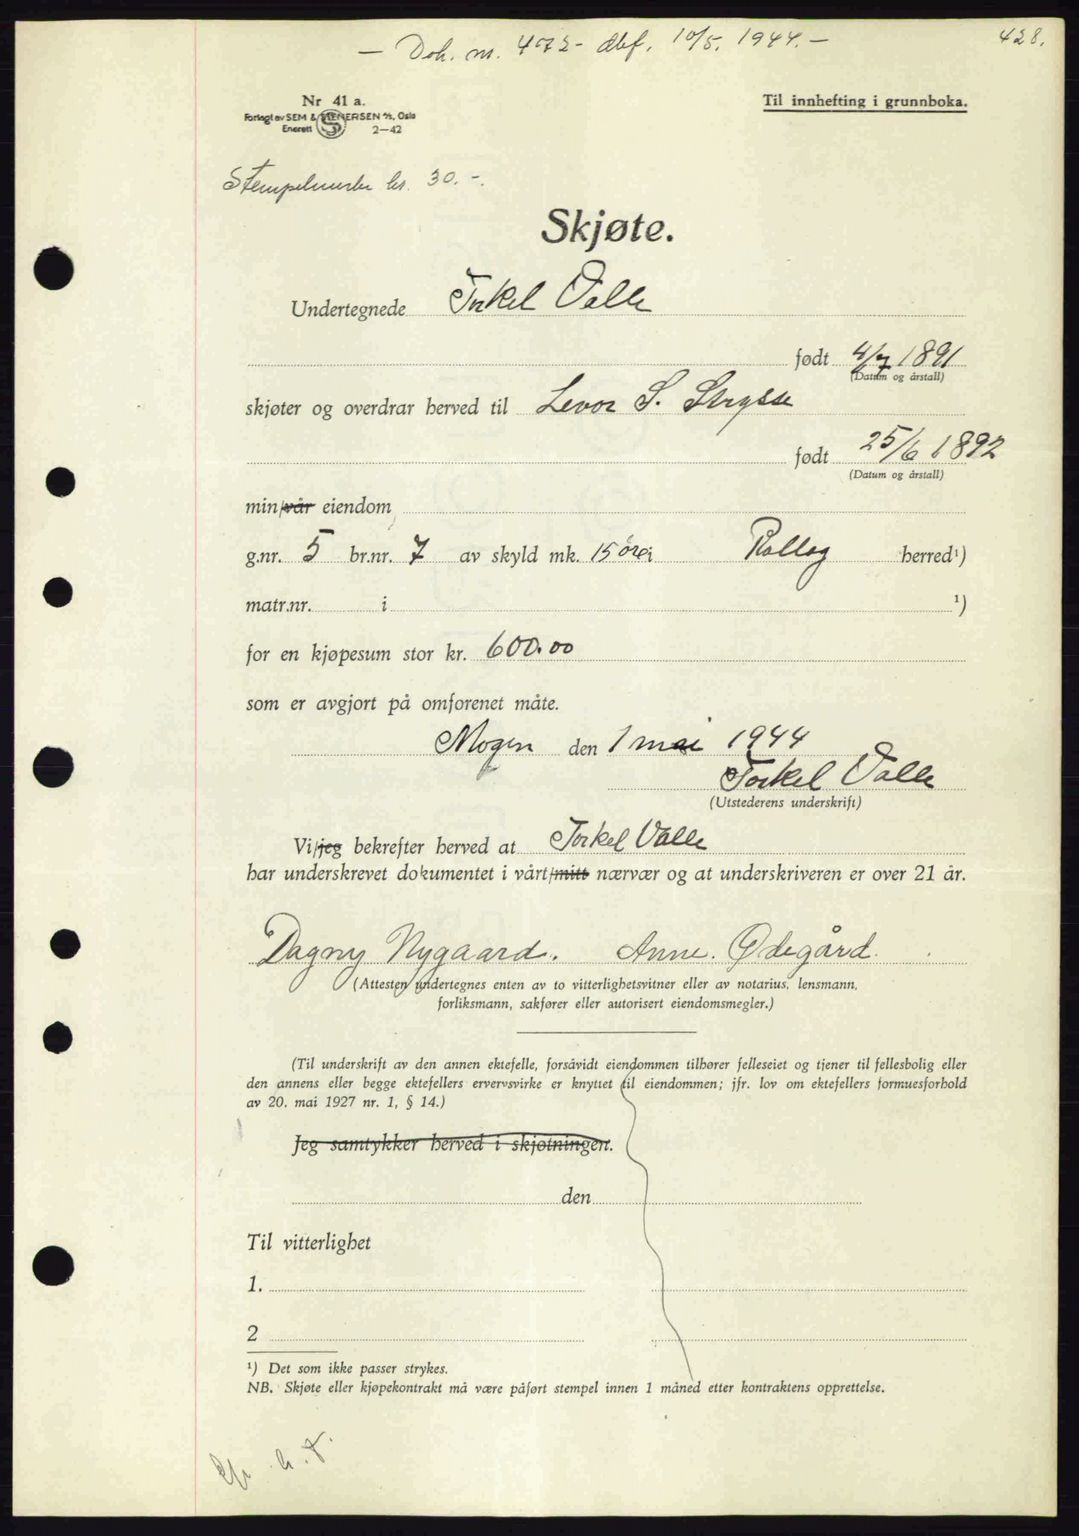 — Dok. nr. 472 - dbf. 10/5. 1944. —
428.
Nr 41 a.
Forlagt av SEM & STENERSEN A/S, Oslo
Enerett 2—42
Til innhefting i grunnboka.
Stempelmerke kr. 30.-.
Skjøte.
Undertegnede Torkel Valle
født 4/7 1891
(Datum og årstall)
skjøter og overdrar herved til Levor S. Strysse
født 25/6 1892
(Datum og årstall)
min/vår eiendom
g.nr. 5 br.nr. 7 av skyld mk. 15 øre i Rollag herred¹)
matr.nr. i ¹)
for en kjøpesum stor kr. 600.00
som er avgjort på omforenet måte.
Mogen den 1 mai 1944
Torkel Valle
(Utstederens underskrift)
Vi/jeg bekrefter herved at Torkel Valle
har underskrevet dokumentet i vårt/mitt nærvær og at underskriveren er over 21 år.
Dagny Nygaard. Anne. Ødegård.
(Attesten undertegnes enten av to vitterlighetsvitner eller av notarius, lensmann,
forliksmann, sakfører eller autorisert eiendomsmegler.)
(Til underskrift av den annen ektefelle, forsåvidt eiendommen tilhører felleseiet og tjener til fellesbolig eller
den annens eller begge ektefellers ervervsvirke er knyttet til eiendommen; jfr. lov om ektefellers formuesforhold
av 20. mai 1927 nr. 1, § 14.)
Jeg samtykker herved i skjøtningen.
den
Til vitterlighet
1.
2
¹) Det som ikke passer strykes.
NB. Skjøte eller kjøpekontrakt må være påført stempel innen 1 måned etter kontraktens opprettelse.